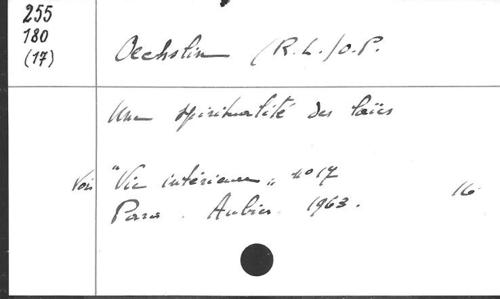 255
180
(17)
Oechslin (R.L.) O.P.
Une spiritualité des laïcs
Voir "Vie intérieure" n° 17
Paris. Aubier. 1963. 16